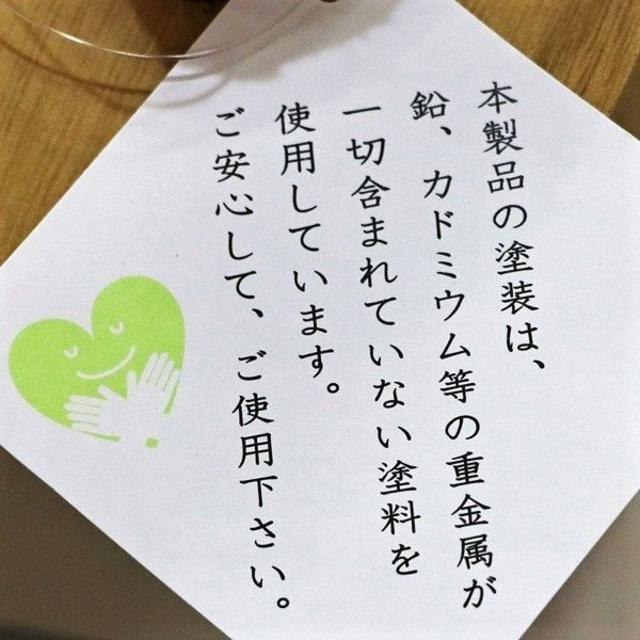 本製品の塗装は、
鉛、カドミウム等の重金属が
一切含まれていない塗料を
使用しています。
ご安心して、ご使用下さい。